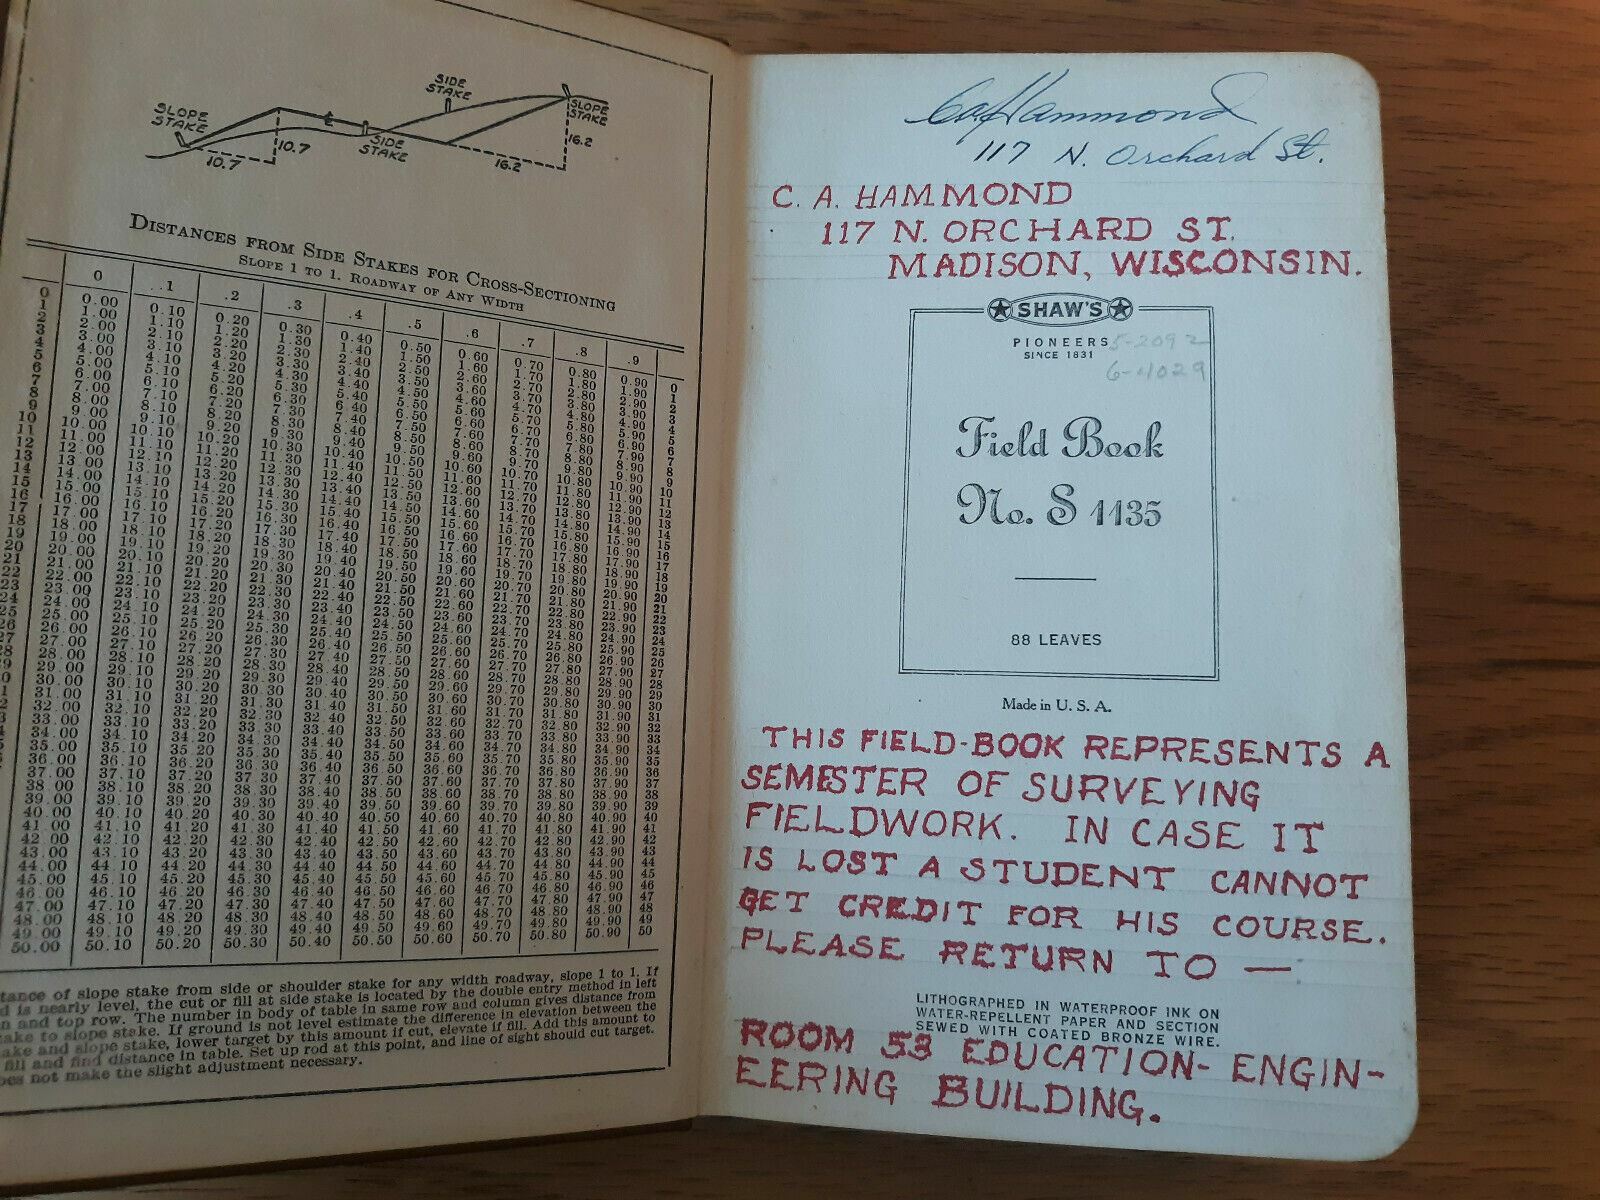 SLOPE
STAKE
10.7
10.7
SIDE
STAKE
SIDE
STAKE
16.2
SLOPE
STAKE
16.2
DISTANCES FROM SIDE STAKES FOR CROSS-SECTIONING
SLOPE 1 TO 1. ROADWAY OF ANY WIDTH
0 .1 .2 .3 .4 .5 .6 .7 .8 .9
0 0.00 0.10 0.20 0.30 0.40 0.50 0.60 0.70 0.80 0.90 0
1 1.00 1.10 1.20 1.30 1.40 1.50 1.60 1.70 1.80 1.90 1
2 2.00 2.10 2.20 2.30 2.40 2.50 2.60 2.70 2.80 2.90 2
3 3.00 3.10 3.20 3.30 3.40 3.50 3.60 3.70 3.80 3.90 3
4 4.00 4.10 4.20 4.30 4.40 4.50 4.60 4.70 4.80 4.90 4
5 5.00 5.10 5.20 5.30 5.40 5.50 5.60 5.70 5.80 5.90 5
6 6.00 6.10 6.20 6.30 6.40 6.50 6.60 6.70 6.80 6.90 6
7 7.00 7.10 7.20 7.30 7.40 7.50 7.60 7.70 7.80 7.90 7
8 8.00 8.10 8.20 8.30 8.40 8.50 8.60 8.70 8.80 8.90 8
9 9.00 9.10 9.20 9.30 9.40 9.50 9.60 9.70 9.80 9.90 9
10 10.00 10.10 10.20 10.30 10.40 10.50 10.60 10.70 10.80 10.90 10
11 11.00 11.10 11.20 11.30 11.40 11.50 11.60 11.70 11.80 11.90 11
12 12.00 12.10 12.20 12.30 12.40 12.50 12.60 12.70 12.80 12.90 12
13 13.00 13.10 13.20 13.30 13.40 13.50 13.60 13.70 13.80 13.90 13
14 14.00 14.10 14.20 14.30 14.40 14.50 14.60 14.70 14.80 14.90 14
15 15.00 15.10 15.20 15.30 15.40 15.50 15.60 15.70 15.80 15.90 15
16 16.00 16.10 16.20 16.30 16.40 16.50 16.60 16.70 16.80 16.90 16
17 17.00 17.10 17.20 17.30 17.40 17.50 17.60 17.70 17.80 17.90 17
18 18.00 18.10 18.20 18.30 18.40 18.50 18.60 18.70 18.80 18.90 18
19 19.00 19.10 19.20 19.30 19.40 19.50 19.60 19.70 19.80 19.90 19
20 20.00 20.10 20.20 20.30 20.40 20.50 20.60 20.70 20.80 20.90 20
21 21.00 21.10 21.20 21.30 21.40 21.50 21.60 21.70 21.80 21.90 21
22 22.00 22.10 22.20 22.30 22.40 22.50 22.60 22.70 22.80 22.90 22
23 23.00 23.10 23.20 23.30 23.40 23.50 23.60 23.70 23.80 23.90 23
24.00 24.10 24.20 24.30 24.40 24.50 24.60 24.70 24.80 24.90 24
25.00 25.10 25.20 25.30 25.40 25.50 25.60 25.70 25.80 25.90 25
26.00 26.10 26.20 26.30 26.40 26.50 26.60 26.70 26.80 26.90 26
27.00 27.10 27.20 27.30 27.40 27.50 27.60 27.70 27.80 27.90 27
28.00 28.10 28.20 28.30 28.40 28.50 28.60 28.70 28.80 28.90 28
29.00 29.10 29.20 29.30 29.40 29.50 29.60 29.70 29.80 29.90 29
30.00 30.10 30.20 30.30 30.40 30.50 30.60 30.70 30.80 30.90 30
31.00 31.10 31.20 31.30 31.40 31.50 31.60 31.70 31.80 31.90 31
32.00 32.10 32.20 32.30 32.40 32.50 32.60 32.70 32.80 32.90 32
33.00 33.10 33.20 33.30 33.40 33.50 33.60 33.70 33.80 33.90 33
34.00 34.10 34.20 34.30 34.40 34.50 34.60 34.70 34.80 34.90 34
35.00 35.10 35.20 35.30 35.40 35.50 35.60 35.70 35.80 35.90 35
36.00 36.10 36.20 36.30 36.40 36.50 36.60 36.70 36.80 36.90 36
37.00 37.10 37.20 37.30 37.40 37.50 37.60 37.70 37.80 37.90 37
38.00 38.10 38.20 38.30 38.40 38.50 38.60 38.70 38.80 38.90 38
39.00 39.10 39.20 39.30 39.40 39.50 39.60 39.70 39.80 39.90 39
40.00 40.10 40.20 40.30 40.40 40.50 40.60 40.70 40.80 40.90 40
41.00 41.10 41.20 41.30 41.40 41.50 41.60 41.70 41.80 41.90 41
42.00 42.10 42.20 42.30 42.40 42.50 42.60 42.70 42.80 42.90 42
43.00 43.10 43.20 43.30 43.40 43.50 43.60 43.70 43.80 43.90 43
44.00 44.10 44.20 44.30 44.40 44.50 44.60 44.70 44.80 44.90 44
45.00 45.10 45.20 45.30 45.40 45.50 45.60 45.70 45.80 45.90 45
46.00 46.10 46.20 46.30 46.40 46.50 46.60 46.70 46.80 46.90 46
47.00 47.10 47.20 47.30 47.40 47.50 47.60 47.70 47.80 47.90 47
48.00 48.10 48.20 48.30 48.40 48.50 48.60 48.70 48.80 48.90 48
49.00 49.10 49.20 49.30 49.40 49.50 49.60 49.70 49.80 49.90 49
50.00 50.10 50.20 50.30 50.40 50.50 50.60 50.70 50.80 50.90 50
of slope stake from side or shoulder stake for any width roadway, slope 1 to 1. If
is nearly level, the cut or fill at side stake is located by the double entry method in left
and top row. The number in body of table in same row and column gives distance from
to slope stake. If ground is not level estimate the difference in elevation between the
and slope stake, lower target by this amount if cut, elevate if fill. Add this amount to
fill and find distance in table. Set up rod at this point, and line of sight should cut target.
not make the slight adjustment necessary.
Hammond
117 N. Orchard St.
C. A. HAMMOND
117 N. ORCHARD ST.
MADISON, WISCONSIN.
SHAW'S
PIONEERS
SINCE 1831
5-2092
6-4029
Field Book
No. S 1135
88 LEAVES
Made in U. S. A.
THIS FIELD-BOOK REPRESENTS A
SEMESTER OF SURVEYING
FIELDWORK. IN CASE IT
IS LOST A STUDENT CANNOT
GET CREDIT FOR HIS COURSE.
PLEASE RETURN TO —
LITHOGRAPHED IN WATERPROOF INK ON
WATER-REPELLENT PAPER AND SECTION
SEWED WITH COATED BRONZE WIRE.
ROOM 53 EDUCATION-ENGIN-
EERING BUILDING.